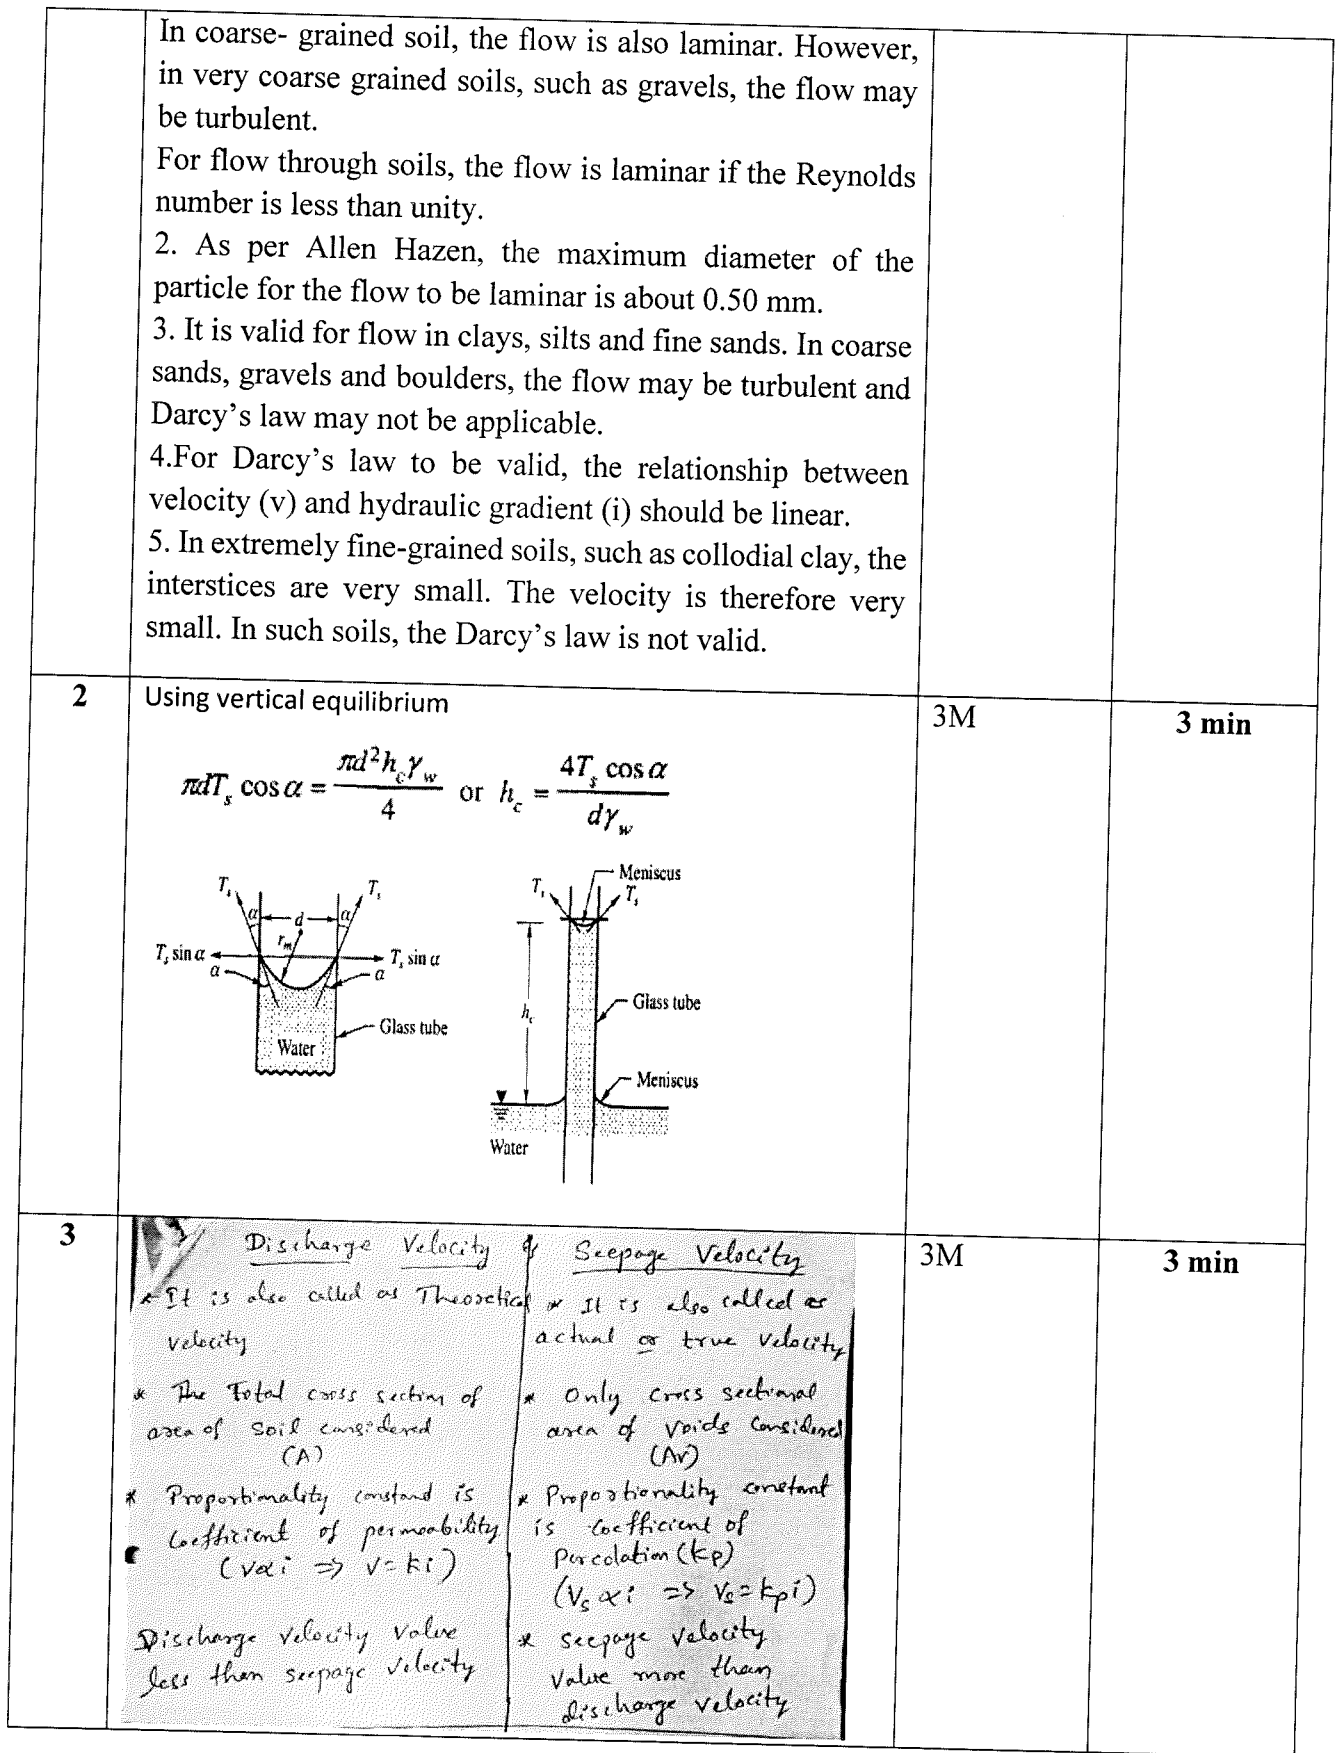 In coarse- grained soil, the flow is also laminar. However,
in very coarse grained soils, such as gravels, the flow may
be turbulent.
For flow through soils, the flow is laminar if the Reynolds
number is less than unity.
2. As per Allen Hazen, the maximum diameter of the
particle for the flow to be laminar is about 0.50 mm.
3. It is valid for flow in clays, silts and fine sands. In coarse
sands, gravels and boulders, the flow may be turbulent and
Darcy's law may not be applicable.
4.For Darcy's law to be valid, the relationship between
velocity (v) and hydraulic gradient (i) should be linear.
5. In extremely fine-grained soils, such as collodial clay, the
interstices are very small. The velocity is therefore very
small. In such soils, the Darcy's law is not valid.
2
Using vertical equilibrium
3M
3 min
πdT_s cos α = πd²h_cγ_w / 4 or h_c = 4T_s cos α / dγ_w
T_s α d α T_s
r_m
T_s sin α T_s sin α
α α
Glass tube
Water
Meniscus
T_s T_s
h_c
Glass tube
Meniscus
Water
3
3M
3 min
Discharge Velocity & Seepage Velocity
* It is also called as Theoretical
velocity
* The Total cross section of
area of soil considered
(A)
* Proportionality constand is
Coefficient of permeability
(v∝i => v=ki)
Discharge velocity value
less than seepage velocity
* It is also called as
actual or true velocity
* Only cross sectional
area of voids Considered
(Av)
* Proportionality constant
is Coefficient of
Percolation (kp)
(Vs ∝ i => Vs = kpi)
* seepage velocity
value more than
discharge velocity